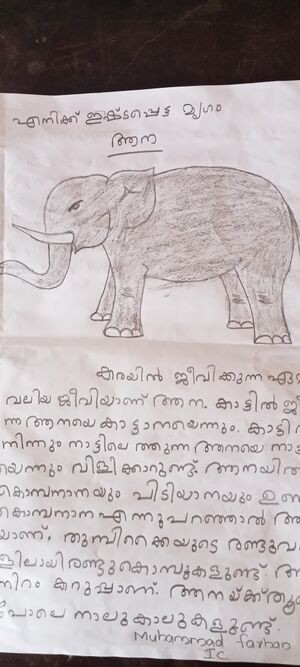 എനിക്ക് ഇഷ്ടപ്പെട്ട മൃഗം
ആന
കരയിൽ ജീവിക്കുന്ന ഏറ
വലിയ ജീവിയാണ് ആന. കാട്ടിൽ ജീ
ന്ന ആനയെ കാട്ടാനയെന്നും. കാട്ടി
നിന്നും നാട്ടിലെത്തുന്ന ആനയെ നാട്ട
യെന്നും വിളിക്കാറുണ്ട്. ആനയിൽ
കൊമ്പനാനയും പിടിയാനയും ഉണ
കൊമ്പനാന എന്നുപറഞ്ഞാൽ ആ
യാണ്. തുമ്പിക്കൈയുടെ രണ്ടുവ
ളിലായി രണ്ടുകൊമ്പുകളുണ്ട്. ആ
നിറം കറുപ്പാണ്. ആനയ്ക്ക് തൂ
പോലെ നാലുകാലുകളുണ്ട്.
Muhammad farhan
IC